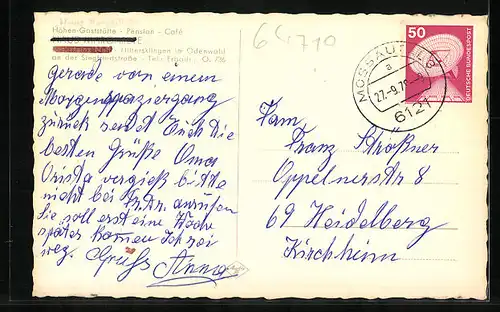 Höhen-Gaststätte - Pension - Café
Hüttersklingen im Odenwald
an der Siegfriedstraße - Tel. Erbach
gerade von einem
Morgenspaziergang
zurück sendt Euch die
besten Grüße Oma
vergieß bitte
nicht bei anrufen
Sie soll erst eine Woche
später kommen Ich rei
weg. Gruß Anna
641710
50
DEUTSCHE BUNDESPOST
MOSSAUTAL
a
27.-9.79
6121
Fam.
Franz Stroßner
Oppelnerstr 8
69 Heidelberg
Kirchheim